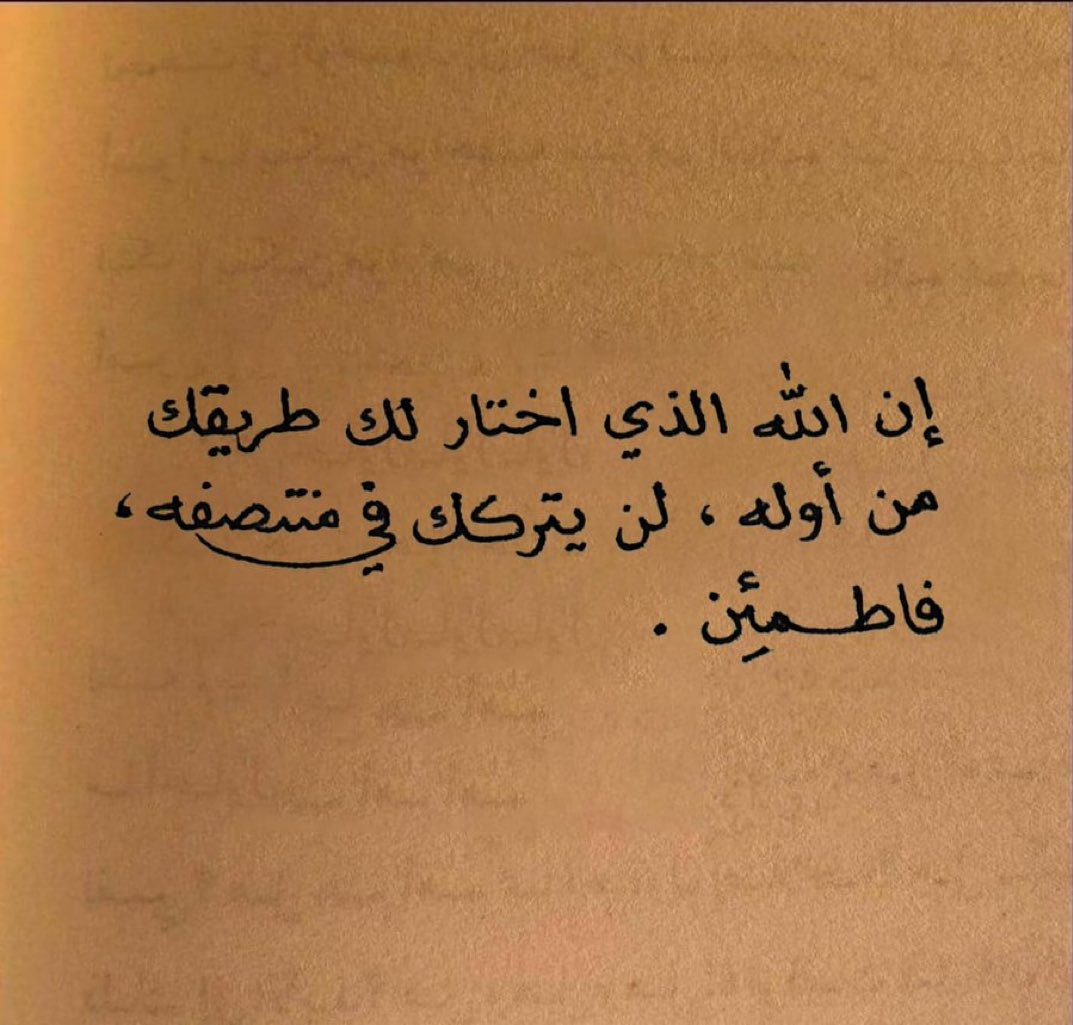 إن الله الذي اختار لك طريقك
من أوله ، لن يتركك في منتصفه ،
فاطمئِن .